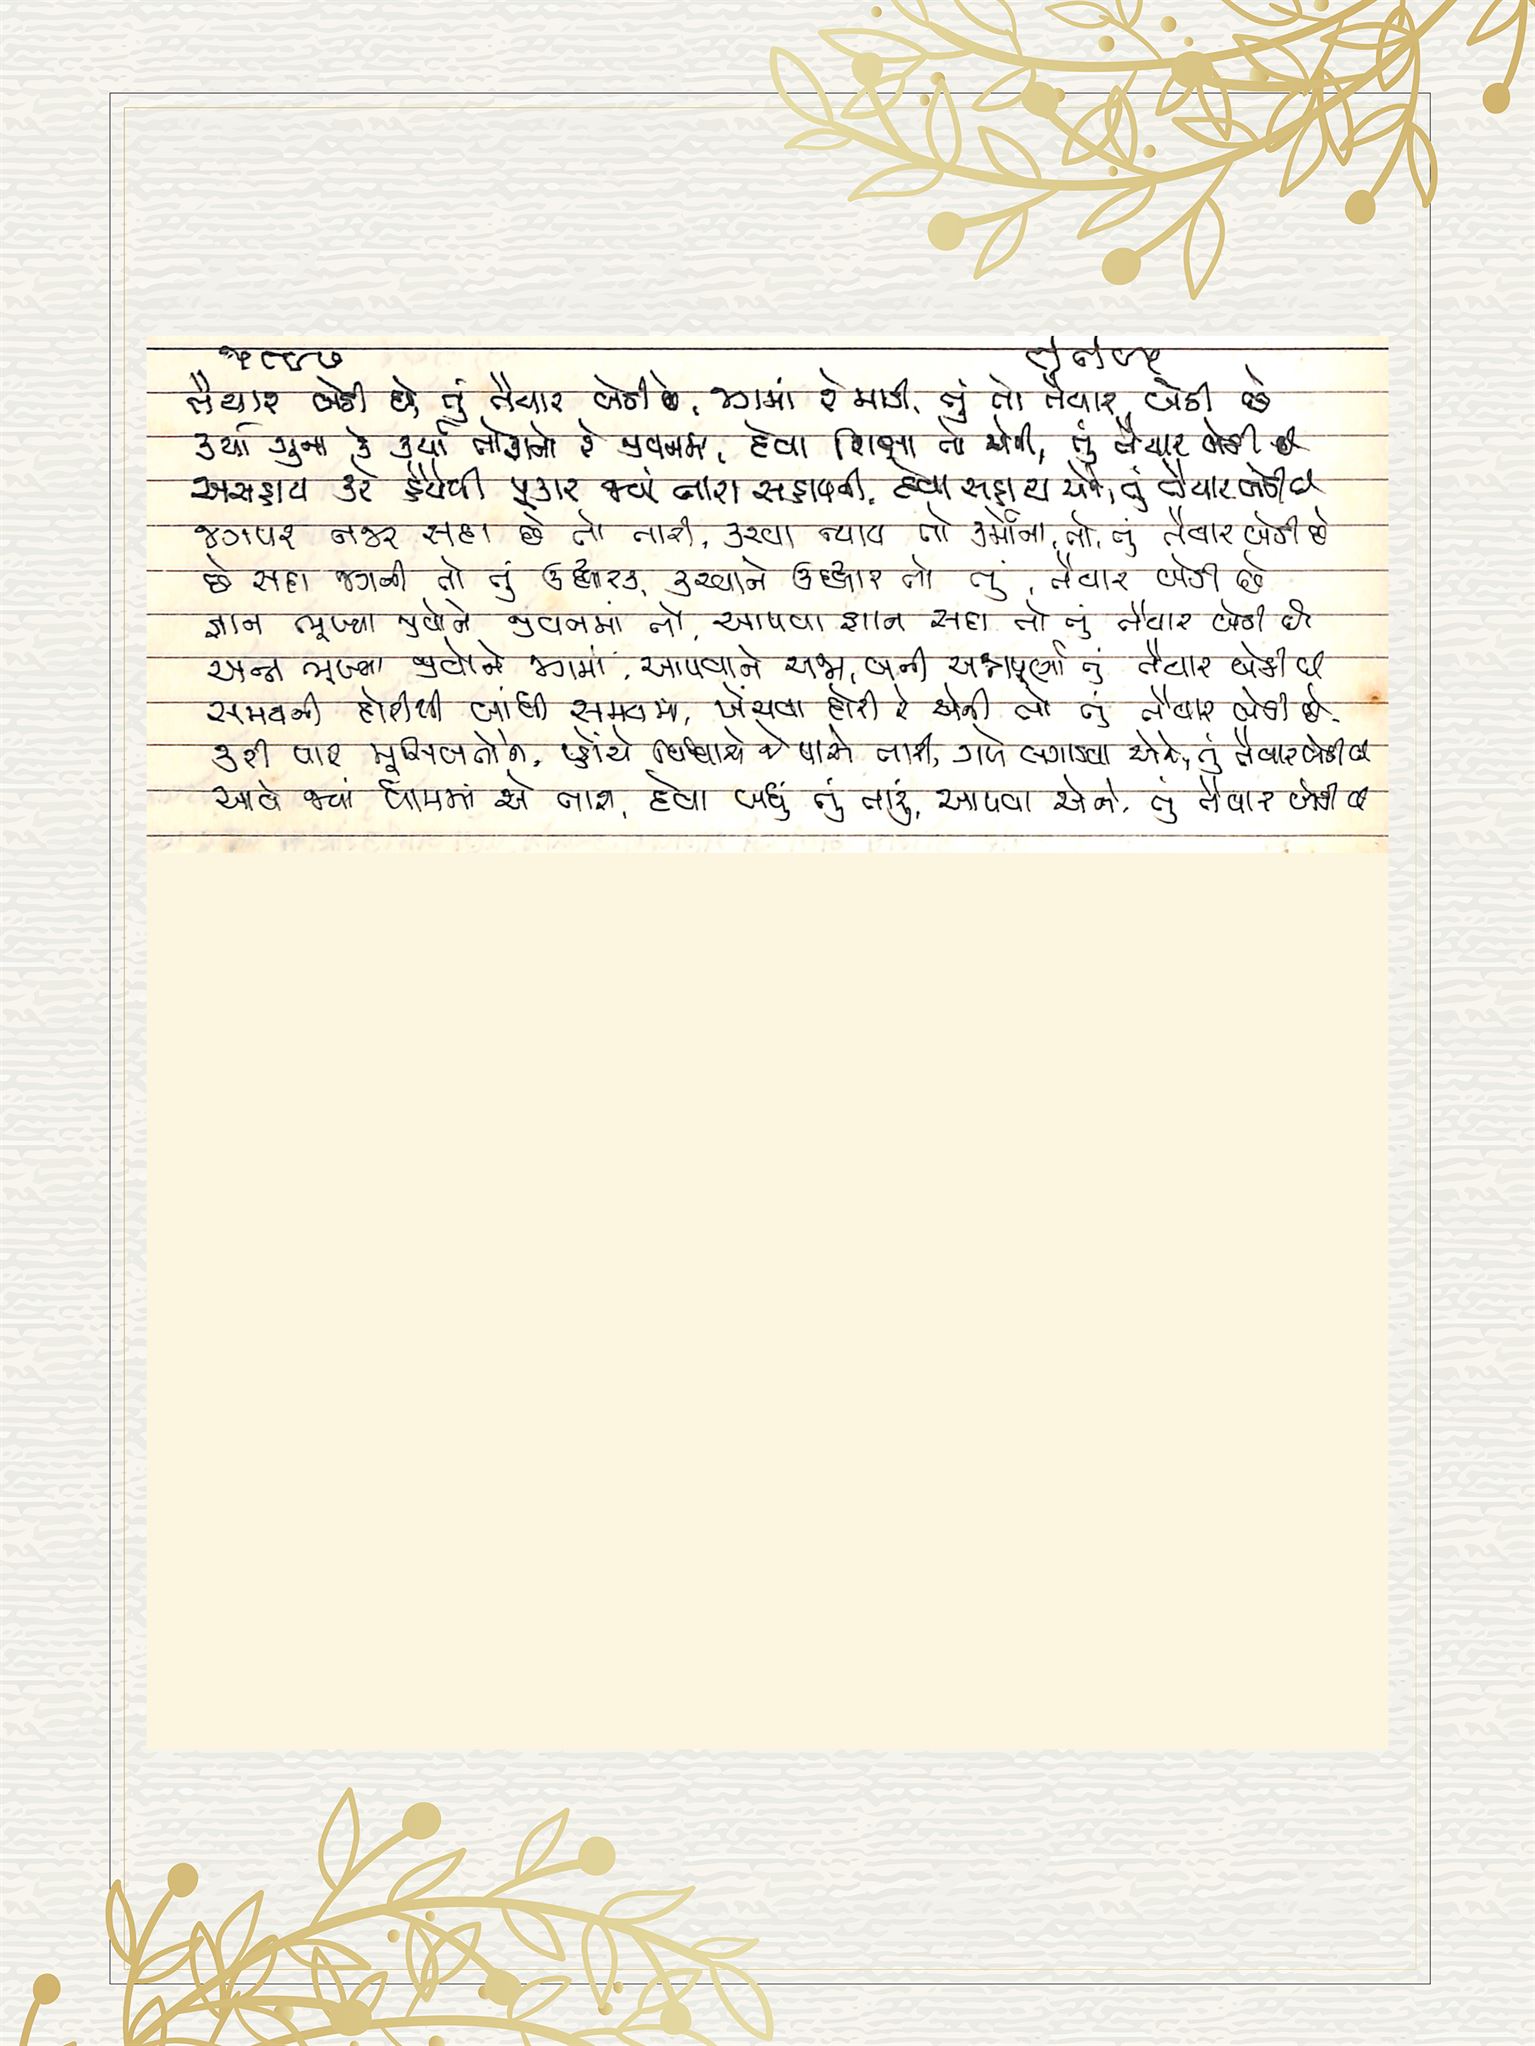 તૈયાર બેઠી છે, તું તૈયાર બેઠી છે, જગમાં રે માડી, તું તો તૈયાર બેઠી છે
કર્યા ગુના કે કર્યા તોફાનો રે જીવનમાં, દેવા શિક્ષા તો એની, તું તૈયાર બેઠી છે
અસહાય કરે હૈયેથી પુકાર જ્યાં તારા સહાયની, દેવા સહાય એને, તું તૈયાર બેઠી છે
જગપર નજર સદા છે તો તારી, કરવા ન્યાય તો કર્મોના, તો, તું તૈયાર બેઠી છે
છે સદા જગની તો તું ઉદ્ધારક, કરવાને ઉદ્ધાર તો તું, તૈયાર બેઠી છે
જ્ઞાન ભૂખ્યા જીવોને જીવનમાં તો, આપવા જ્ઞાન સદા તો તું તૈયાર બેઠી છે
અન્ન ભૂખ્યા જીવોને જગમાં, આપવાને અન્ન, બની અન્નપૂર્ણા તું તૈયાર બેઠી છે
સમયની દોરીથી બાંધી સમયમાં, ખેંચવા દોરી રે એની તો તું તૈયાર બેઠી છે.
કરી પાર મુસીબતોને, પહોંચે જે પાસે તારી, ગળે લગાડવા એને, તું તૈયાર બેઠી છે
આવે જ્યાં ધામમાં એ તારા, દેવા બધું તું તારું, આપવા એને, તું તૈયાર બેઠી છે